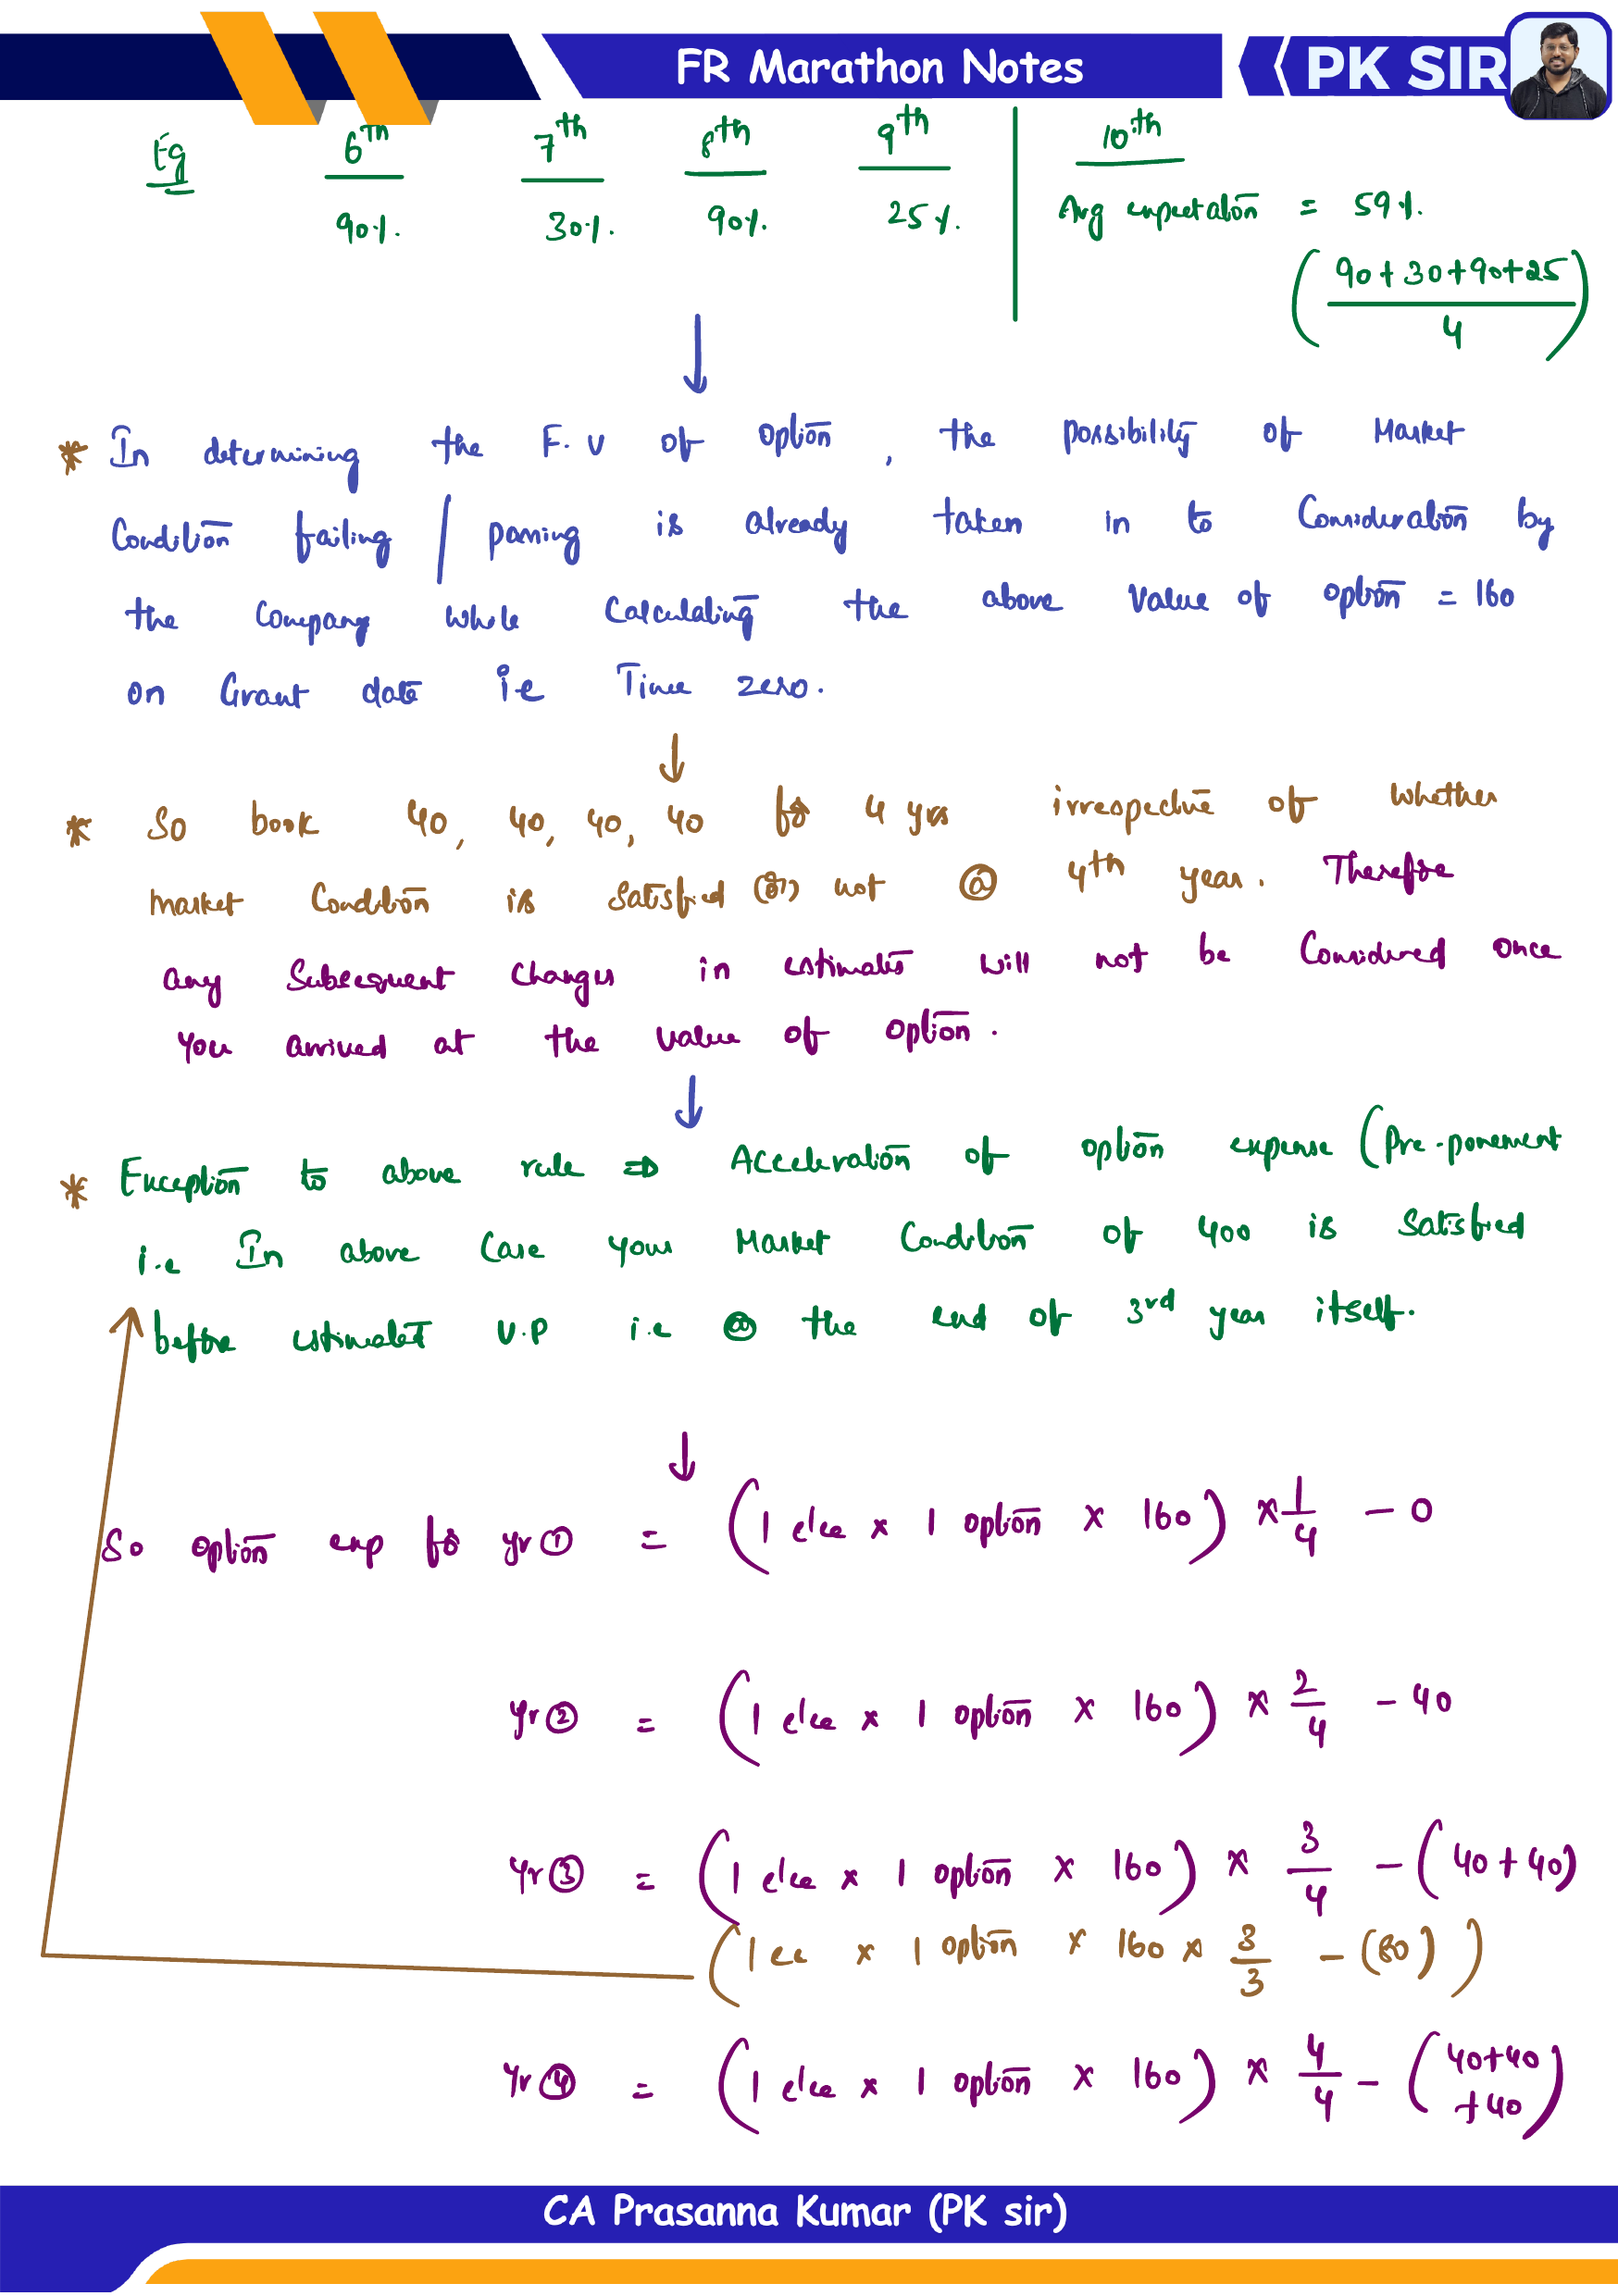 FR Marathon Notes
PK SIR
Eg 6th 7th 8th 9th 10th
90%. 30%. 90%. 25%. Avg expectation = 59%.
(90+30+90+25 / 4)
* In determining the F.V of option, the possibility of Market
Condition failing / passing is already taken in to Consideration by
the Company while Calculating the above Value of option = 160
on Grant date i.e Time zero.
* So book 40, 40, 40, 40 for 4 yrs irrespective of whether
market Condition is Satisfied (or) not @ 4th year. Therefore
any Subsequent Changes in estimates will not be Considered once
you arrived at the value of option.
* Exception to above rule ⇒ Acceleration of option expense (Pre-ponement
i.e In above Case your Market Condition of 400 is Satisfied
before estimated V.P i.e @ the end of 3rd year itself.
So option exp for yr ① = (1 e'ee x 1 option x 160) x 1/4 - 0
yr ② = (1 e'ee x 1 option x 160) x 2/4 - 40
yr ③ = (1 e'ee x 1 option x 160) x 3/4 - (40 + 40)
(1 ee x 1 option x 160 x 3/3 - (80))
yr ④ = (1 e'ee x 1 option x 160) x 4/4 - (40+40
+40)
CA Prasanna Kumar (PK sir)